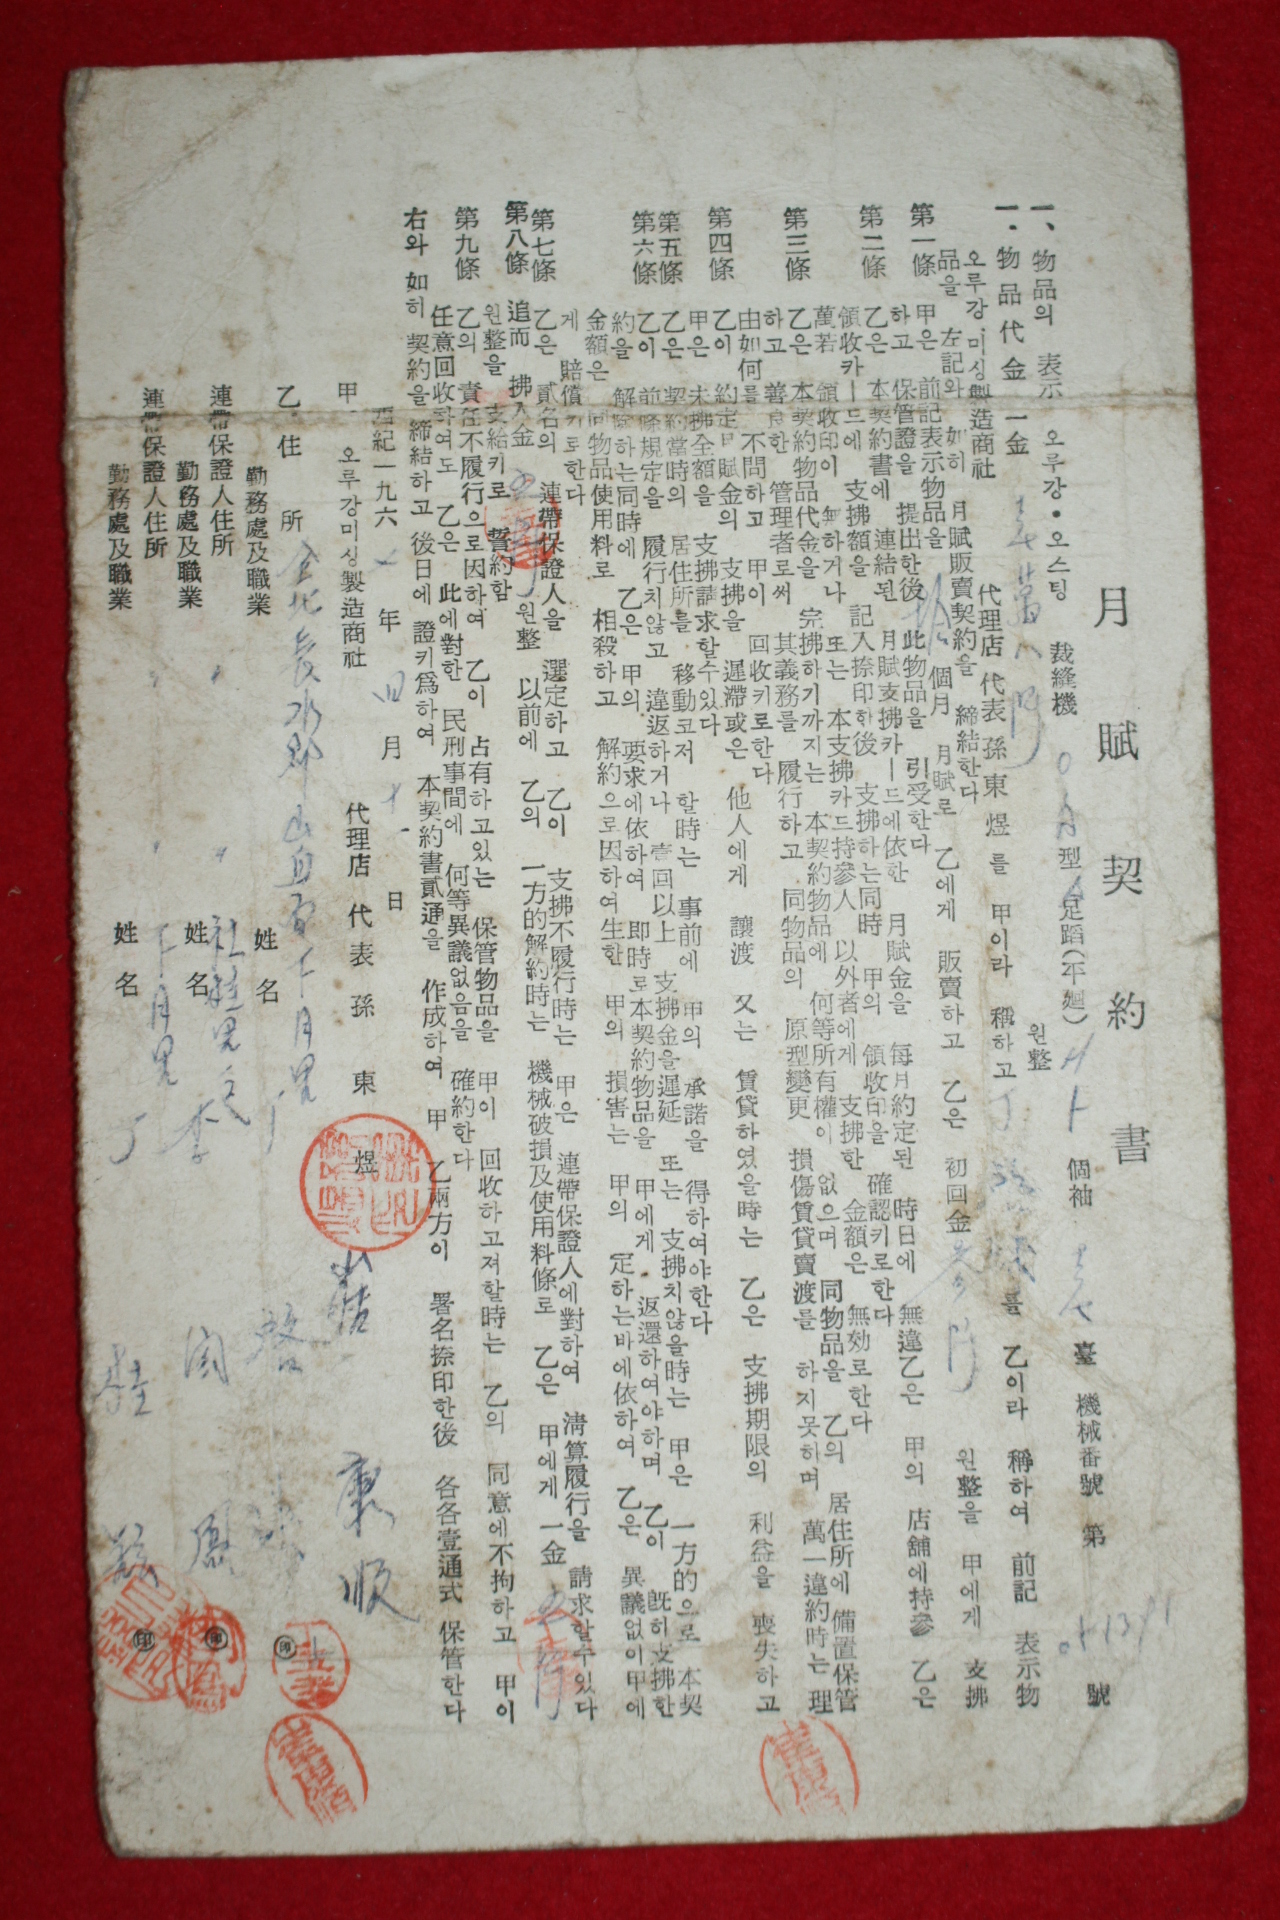 月賦契約書
一、物品의 表示 오루강・오스팅 裁縫機 型 足踏(平廻) 個袖 臺 機械番號 第 號
一、物品代金 一金 원整
오루강미싱製造商社 代理店 代表 孫東煜를 甲이라 稱하고 를 乙이라 稱하여 前記 表示物
品을 左記와 如히 月賦販賣契約을 締結한다
第一條 甲은 前記表示物品을 拾個月 月賦로 乙에게 販賣하고 乙은 初回金 원整을 甲에게 支拂
하고 保管證을 提出한後 此物品을 引受한다
第二條 乙은 本契約書에 連結된 月賦支拂카ー드에依한 月賦金을 每月約定된 時日에 無違乙은 甲의 店舖에持參 乙은
領收카ー드에 支拂額을 記入捺印한後 支拂하는同時 甲의 領收印을 確認키로한다
萬若 領收印이 無하거나 또는 本支拂카드持參人 以外者에게 支拂한 金額은 無効로한다
第三條 乙은 本契約物品代金을 完拂하기까지는 本契約物品에 何等所有權이 없으며 同物品을 乙의 居住所에 備置保管
하고 善良한 管理者로써 其義務를 履行하고 同物品의 原型變更 損傷賃貸賣渡를 하지못하며 萬一違約時는 理
由如何를 不問하고 甲이 回收키로한다
第四條 乙이 約定月賦金의 支拂을 遲滯或은 他人에게 讓渡 又는 賃貸하였을時는 乙은 支拂期限의 利益을 喪失하고
甲은 未拂全額을 支拂請求할수있다
第五條 乙은 契約當時의 居住所를 移動코저 할時는 事前에 甲의 承諾을 得하여야한다
第六條 乙이 前條規定을 履行치않고 違返하거나 壹回以上 支拂金을遲延 또는 支拂치않을時는 甲은 一方的으로 本契
約을 解除하는同時에 乙은 甲의 要求에依하여 即時로本契約物品을 甲에게 返還하여야하며 乙이 旣히支拂한
金額은 同物品使用料로 相殺하고 解約으로因하여生한 甲의 損害는 甲의 定하는바에依하여 乙은 異議없이甲에
게 賠償키로한다
第七條 乙은 貳名의 連帶保證人을 選定하고 乙이 支拂不履行時는 甲은 連帶保證人에對하여 淸算履行을 請求할수있다
第八條 追而 拂入金 원整 以前에 乙의 一方的解約時는 機械破損及使用料條로 乙은 甲에게 一金
원整을 支給키로 誓約함
第九條 乙의 責任不履行으로因하여 乙이 占有하고있는 保管物品을 甲이 回收하고저할時는 乙의 同意에不拘하고 甲이
任意回收하여도 乙은 此에對한 民刑事間에 何等異議없음을 確約한다
右와 如히 契約을 締結하고 後日에 證키爲하여 本契約書貳通을 作成하여 甲 乙兩方이 署名捺印한後 各各壹通式 保管한다
西紀一九六 年 四 月 十 日
甲 오루강미싱製造商社 代理店 代表 孫東煜
乙 住所 全北長水郡
勤務處及職業 姓名 ㊞
連帶保證人住所
勤務處及職業 姓名 李 ㊞
連帶保證人住所
勤務處及職業 姓名 ㊞